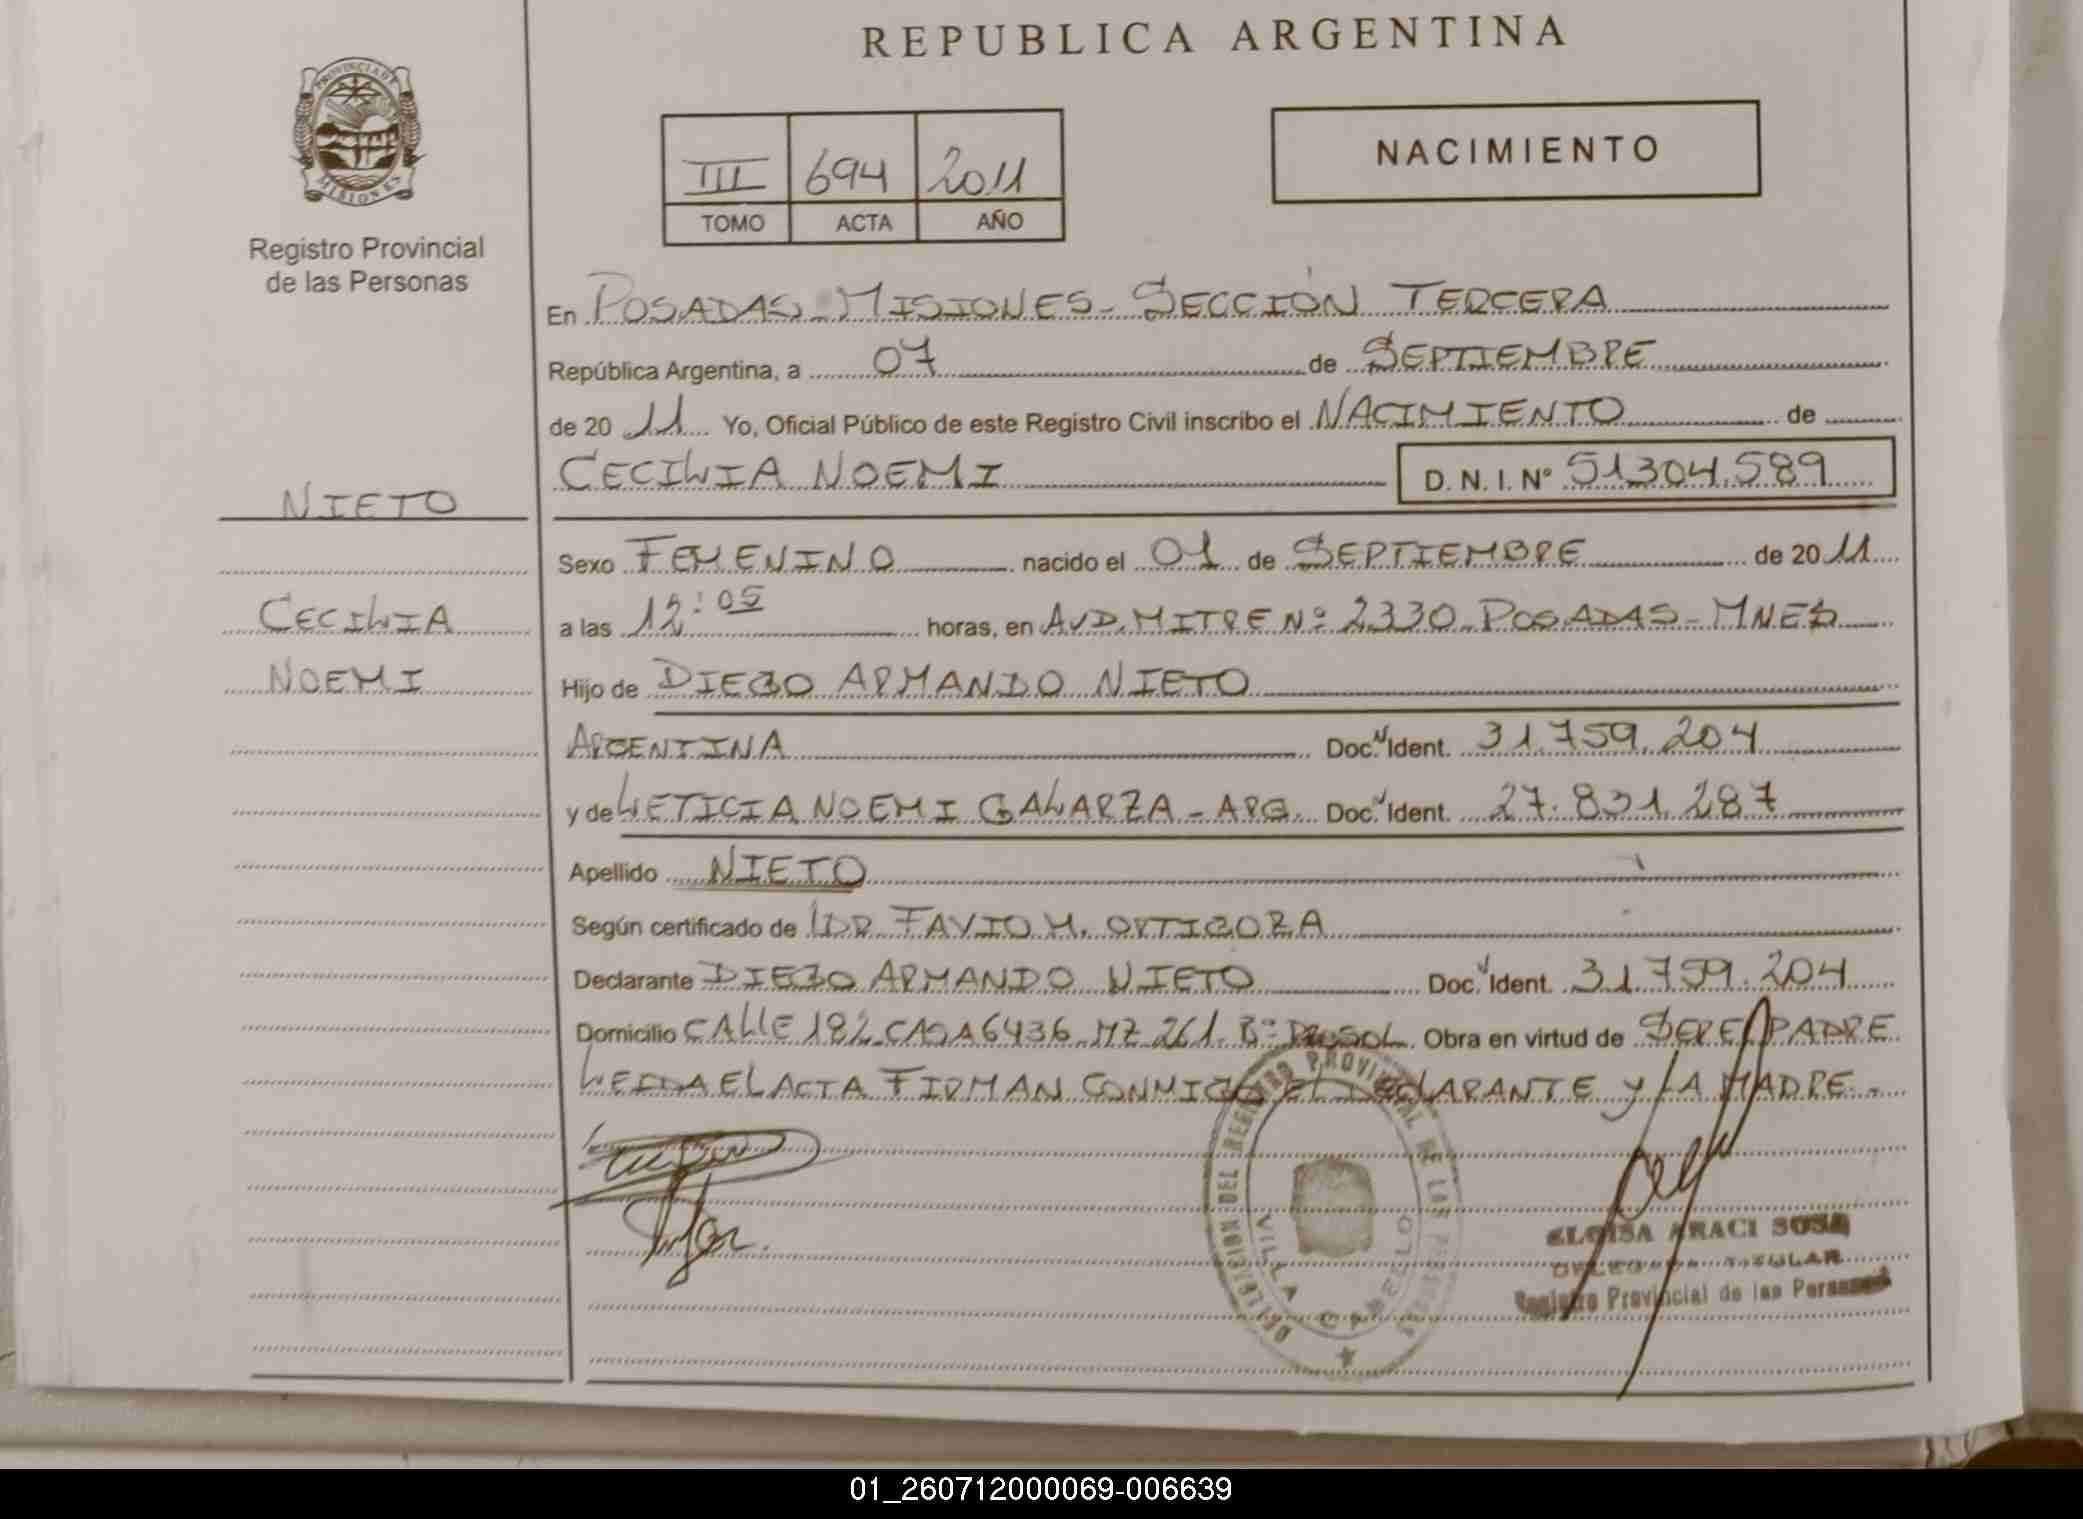 REPUBLICA ARGENTINA
PROVINCIA DE
MISIONES
Registro Provincial
de las Personas
III 694 2011
TOMO ACTA AÑO
NACIMIENTO
En POSADAS - MISIONES - SECCIÓN TERCERA
República Argentina, a 07 de SEPTIEMBRE
de 20 11 Yo, Oficial Público de este Registro Civil inscribo el NACIMIENTO de
CECILIA NOEMI D. N. I. Nº 51304.589
NIETO
CECILIA
NOEMI
Sexo FEMENINO nacido el 01 de SEPTIEMBRE de 20 11
a las 12:05 horas, en AVD. MITRE Nº 2330 POSADAS - MNES
Hijo de DIEGO ARMANDO NIETO
ARGENTINA Doc. Ident. 31.759.204
y de LETICIA NOEMI GALARZA - ARG Doc. Ident. 27.831.287
Apellido NIETO
Según certificado de DR FAVIO M.
Declarante DIEGO ARMANDO NIETO Doc. Ident. 31759.204
Domicilio CALLE 182 CASA 6436 MZ 261 Bº Obra en virtud de SER EL PADRE
LEIDA EL ACTA FIRMAN CONMIGO EL DECLARANTE Y LA MADRE.-
DELEGACION DEL REGISTRO PROVINCIAL DE LAS PERSONAS
VILLA CABELLO
ELOISA ARACI SOSA
DELEGADA TITULAR
Registro Provincial de las Personas
01_260712000069-006639